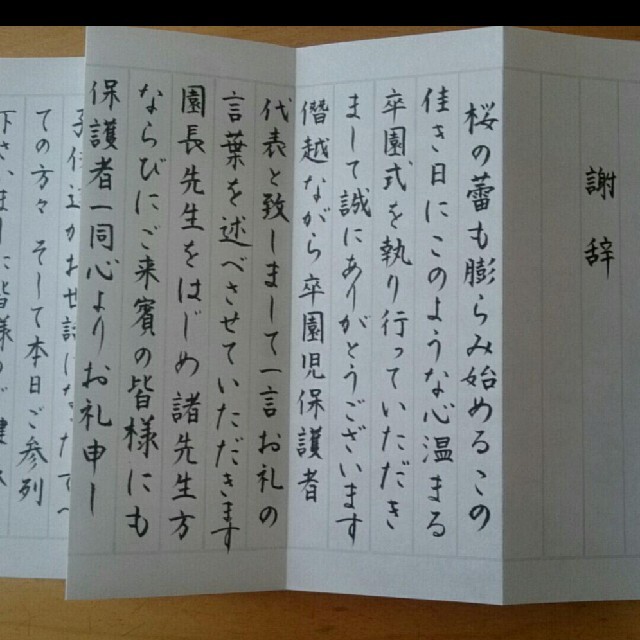 謝辞
桜の蕾も膨らみ始めるこの
佳き日にこのような心温まる
卒園式を執り行っていただき
まして誠にありがとうございます
僭越ながら卒園児保護者
代表と致しまして一言お礼の
言葉を述べさせていただきます
園長先生をはじめ諸先生方
ならびにご来賓の皆様にも
保護者一同心よりお礼申し
ての方々 そして本日ご参列